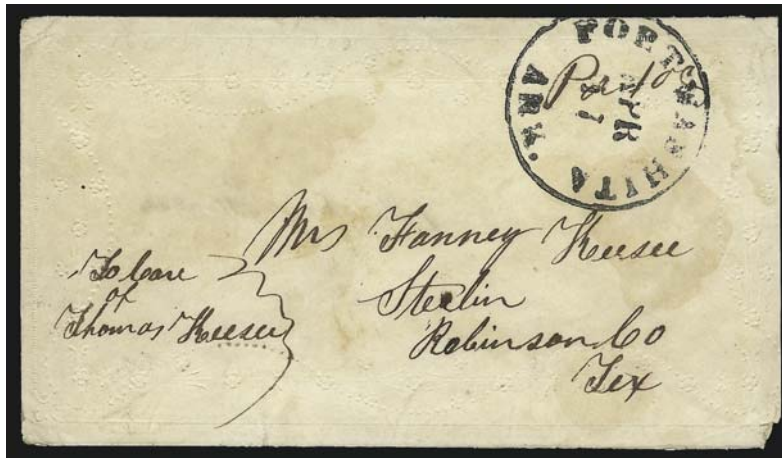 FORT WASHITA
ARK.
Paid 10
APR
Mrs Fanney Keesee
Sterlin
Robinson Co
Tex
To Care
of
Thomas Keesee